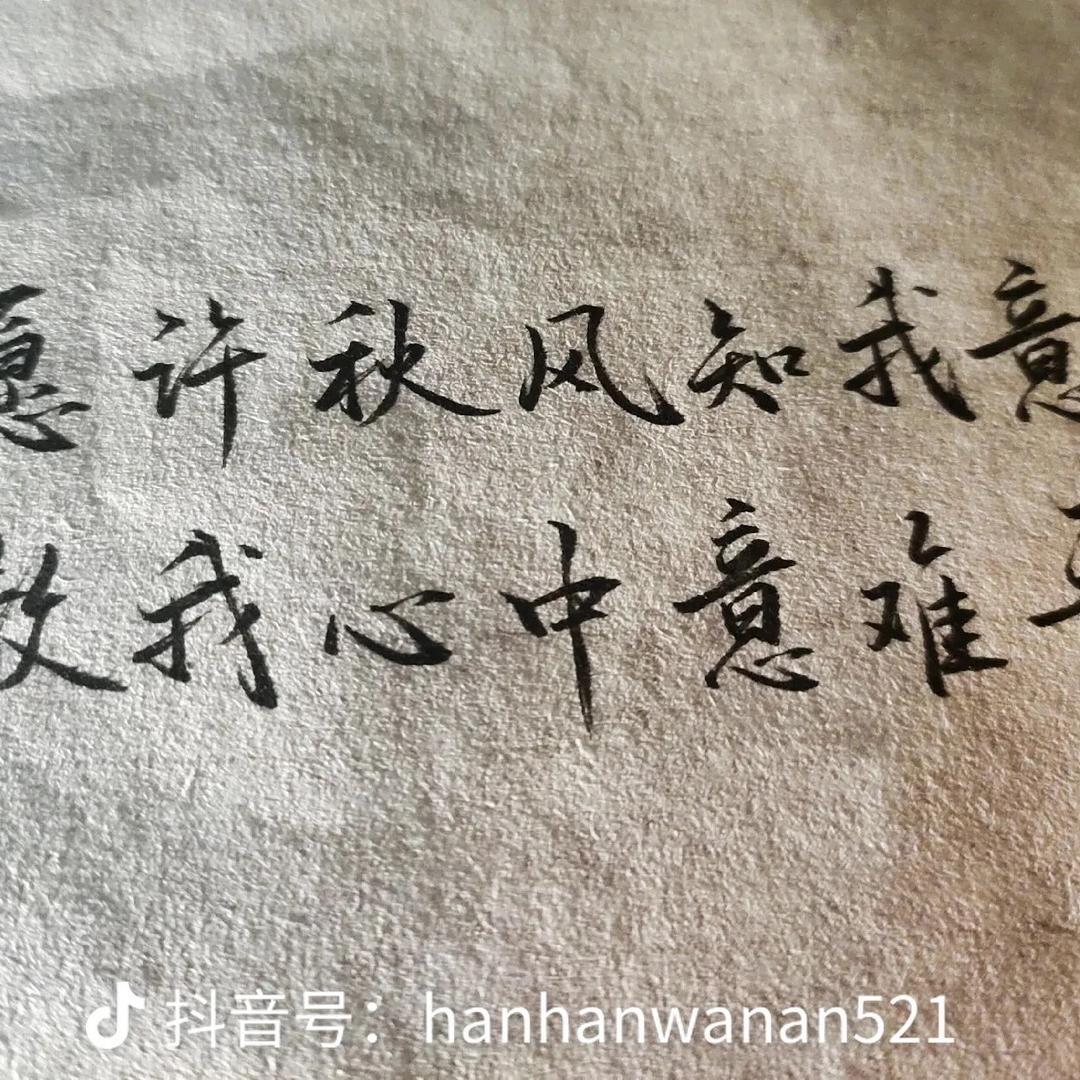 愿许秋风知我意
散我心中意难平
抖音号：hanhanwanan521